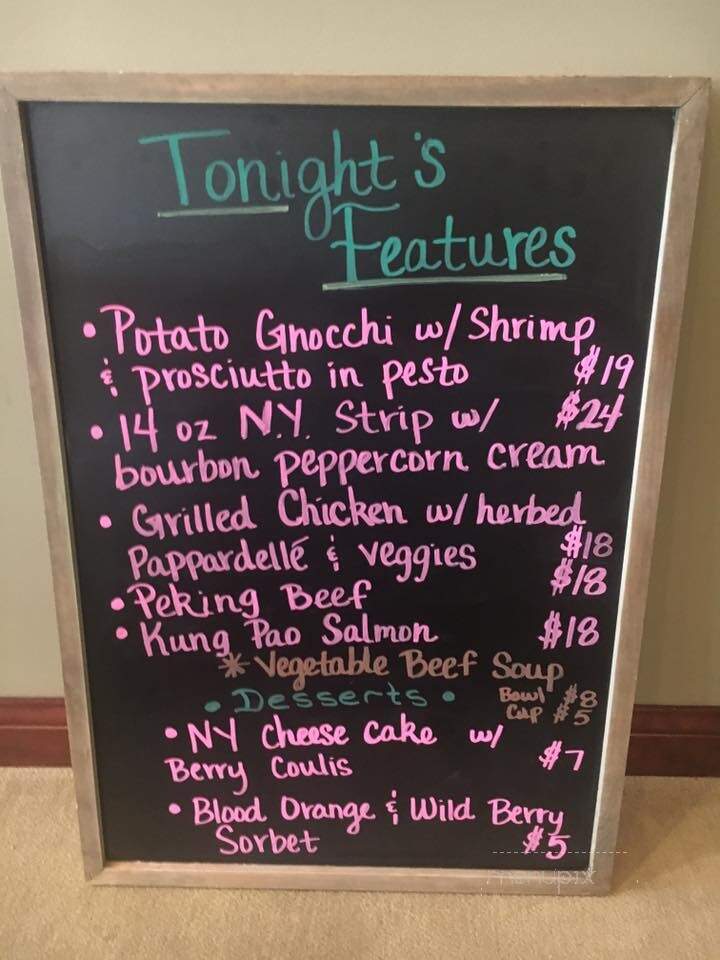 Tonight's
Features
• Potato Gnocchi w/ Shrimp
& prosciutto in pesto $19
• 14 oz N.Y. Strip w/ $24
bourbon peppercorn cream
• Grilled Chicken w/ herbed
Pappardellé & veggies $18
• Peking Beef $18
• Kung Pao Salmon $18
* Vegetable Beef Soup
Bowl $8
• Desserts •
Cup $5
• NY Cheese Cake w/
Berry Coulis $7
• Blood Orange & Wild Berry
Sorbet $5
menupix